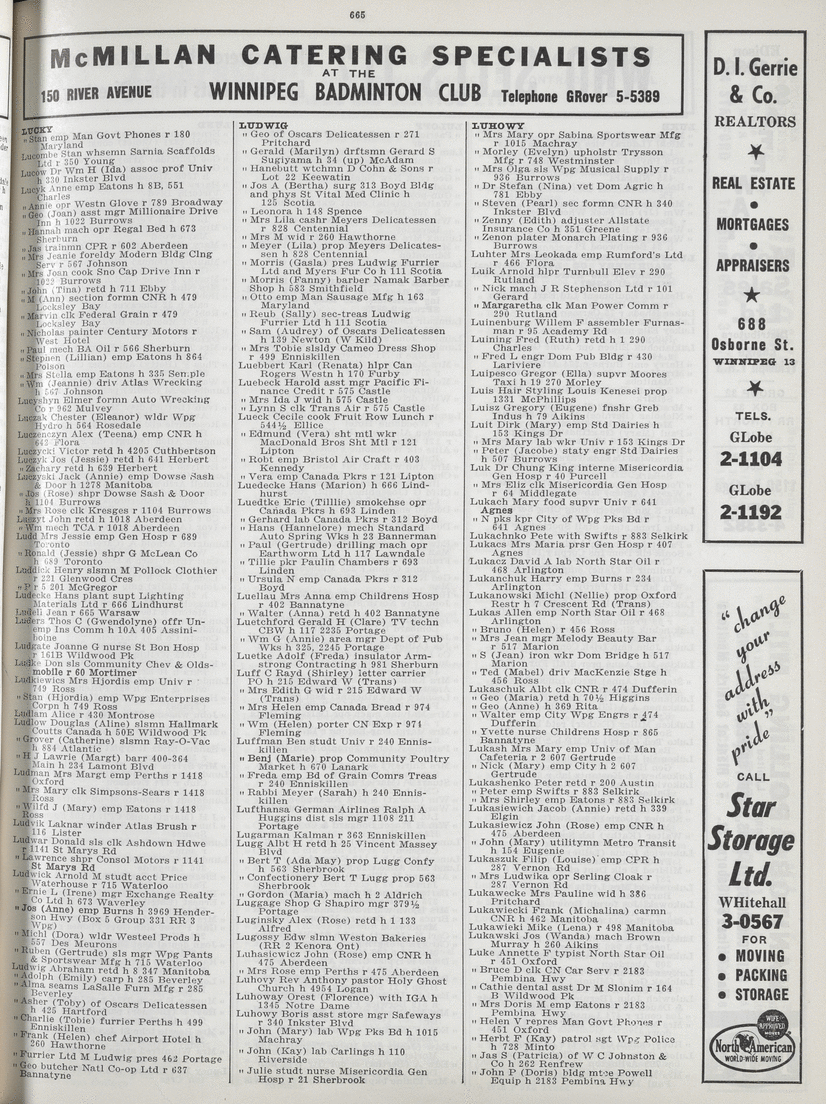 665
McMILLAN CATERING SPECIALISTS
AT THE
150 RIVER AVENUE WINNIPEG BADMINTON CLUB Telephone GRover 5-5389
LUCKY
" Stan emp Man Govt Phones r 180
Maryland
Lucombe Stan whsemn Sarnia Scaffolds
Ltd r 350 Young
Lucow Dr Wm H (Ida) assoc prof Univ
h 330 Inkster Blvd
Lucyk Anne emp Eatons h 8B, 551
Charles
" Annie opr Westn Glove r 789 Broadway
" Geo (Joan) asst mgr Millionaire Drive
Inn h 1022 Burrows
" Hannah mach opr Regal Bed h 673
Sherburn
" Jas trainmn CPR r 602 Aberdeen
" Mrs Jeanie foreldy Modern Bldg Clng
Serv r 567 Johnson
" Mrs Joan cook Sno Cap Drive Inn r
1022 Burrows
" John (Tina) retd h 711 Ebby
" M (Ann) section formn CNR h 479
Locksley Bay
" Marvin clk Federal Grain r 479
Locksley Bay
" Nicholas painter Century Motors r
West Hotel
" Paul mech BA Oil r 566 Sherburn
" Stephen (Lillian) emp Eatons h 864
Polson
" Mrs Stella emp Eatons h 335 Semple
" Wm (Jeannie) driv Atlas Wrecking
h 567 Johnson
Lucyshyn Elmer formn Auto Wrecking
Co r 962 Mulvey
Luczak Chester (Eleanor) wldr Wpg
Hydro h 564 Rosedale
Luczenczyn Alex (Teena) emp CNR h
643 Flora
Luczycki Victor retd h 4205 Cuthbertson
Luczyk Jos (Jessie) retd h 641 Herbert
" Zachary retd h 639 Herbert
Luczyski Jack (Annie) emp Dowse Sash
& Door h 1278 Manitoba
" Jos (Rose) shpr Dowse Sash & Door
h 1104 Burrows
" Mrs Rose clk Kresges r 1104 Burrows
Luczyt John retd h 1018 Aberdeen
" Wm mech TCA r 1018 Aberdeen
Ludd Mrs Jessie emp Gen Hosp r 689
Toronto
" Ronald (Jessie) shpr G McLean Co
h 689 Toronto
Luddick Henry slsmn M Pollock Clothier
r 221 Glenwood Cres
" P r 5 201 McGregor
Ludecke Hans plant supt Lighting
Materials Ltd r 666 Lindhurst
Ludell Jean r 665 Warsaw
Luders Thos C (Gwendolyne) offr Un-
emp Ins Comm h 10A 405 Assini-
boine
Ludgate Joanne G nurse St Bon Hosp
r 161B Wildwood Pk
Ludke Don sls Community Chev & Olds-
mobile r 60 Mortimer
Ludkiewics Mrs Hjordis emp Univ r
749 Ross
" Stan (Hjordia) emp Wpg Enterprises
Corpn h 749 Ross
Ludlam Alice r 430 Montrose
Ludlow Douglas (Aline) slsmn Hallmark
Coutts Canada h 50E Wildwood Pk
" Grover (Catherine) slsmn Ray-O-Vac
h 884 Atlantic
" H J Lawrie (Margt) barr 400-364
Main h 234 Lamont Blvd
Ludman Mrs Margt emp Perths r 1418
Oxford
" Mrs Mary clk Simpsons-Sears r 1418
Ross
" Wilfd J (Mary) emp Eatons r 1418
Ross
Ludvik Laknar winder Atlas Brush r
116 Lister
Ludwar Donald sls clk Ashdown Hdwe
r 1141 St Marys Rd
" Lawrence shpr Consol Motors r 1141
St Marys Rd
Ludwick Arnold M studt acct Price
Waterhouse r 715 Waterloo
" Ernie L (Irene) mgr Exchange Realty
Co Ltd h 673 Waverley
" Jos (Anne) emp Burns h 3969 Hender-
son Hwy (Box 5 Group 331 RR 3
Wpg)
" Michl (Dora) wldr Westeel Prods h
557 Des Meurons
" Ruben (Gertrude) sls mgr Wpg Pants
& Sportswear Mfg h 715 Waterloo
Ludwig Abraham retd h 8 347 Manitoba
" Adolph (Emily) carp h 285 Beverley
" Alma seams LaSalle Furn Mfg r 285
Beverley
" Asher (Toby) of Oscars Delicatessen
h 425 Hartford
" Charlie (Tobie) furrier Perths h 499
Enniskillen
" Frank (Helen) chef Airport Hotel h
260 Hawthorne
" Furrier Ltd M Ludwig pres 462 Portage
" Geo butcher Natl Co-op Ltd r 637
Bannatyne
LUDWIG
" Geo of Oscars Delicatessen r 271
Pritchard
" Gerald (Marilyn) drftsmn Gerard S
Sugiyama h 34 (up) McAdam
" Hanebutt wtchmn D Cohn & Sons r
Lot 22 Keewatin
" Jos A (Bertha) surg 313 Boyd Bldg
and phys St Vital Med Clinic h
125 Scotia
" Leonora h 148 Spence
" Mrs Lila cashr Meyers Delicatessen
r 828 Centennial
" Mrs M wid r 260 Hawthorne
" Meyer (Lila) prop Meyers Delicates-
sen h 828 Centennial
" Morris (Gasla) pres Ludwig Furrier
Ltd and Myers Fur Co h 111 Scotia
" Morris (Fanny) barber Namak Barber
Shop h 583 Smithfield
" Otto emp Man Sausage Mfg h 163
Maryland
" Reub (Sally) sec-treas Ludwig
Furrier Ltd h 111 Scotia
" Sam (Audrey) of Oscars Delicatessen
h 139 Newton (W Kild)
" Mrs Tobie slsldy Cameo Dress Shop
r 499 Enniskillen
Luebbert Karl (Renata) hlpr Can
Rogers Westn h 170 Furby
Luebeck Harold asst mgr Pacific Fi-
nance Credit r 575 Castle
" Mrs Ida J wid h 575 Castle
" Lynn S clk Trans Air r 575 Castle
Lueck Cecile cook Fruit Row Lunch r
544½ Ellice
" Edmund (Vera) sht mtl wkr
MacDonald Bros Sht Mtl r 121
Lipton
" Robt emp Bristol Air Craft r 403
Kennedy
" Vera emp Canada Pkrs r 121 Lipton
Luedecke Hans (Marion) h 666 Lind-
hurst
Luedtke Eric (Tilllie) smokehse opr
Canada Pkrs h 693 Linden
" Gerhard lab Canada Pkrs r 312 Boyd
" Hans (Hannelore) mech Standard
Auto Spring Wks h 23 Bannerman
" Paul (Gertrude) drilling mach opr
Earthworm Ltd h 117 Lawndale
" Tillie pkr Paulin Chambers r 693
Linden
" Ursula N emp Canada Pkrs r 312
Boyd
Luellau Mrs Anna emp Childrens Hosp
r 402 Bannatyne
" Walter (Anna) retd h 402 Bannatyne
Luetchford Gerald H (Clare) TV techn
CBW h 117 2235 Portage
" Wm G (Annie) area mgr Dept of Pub
Wks h 325, 2245 Portage
Luetke Adolf (Freda) insulator Arm-
strong Contracting h 981 Sherburn
Luff C Rayd (Shirley) letter carrier
PO h 215 Edward W (Trans)
" Mrs Edith G wid r 215 Edward W
(Trans)
" Mrs Helen emp Canada Bread r 974
Fleming
" Wm (Helen) porter CN Exp r 974
Fleming
Luffman Ben studt Univ r 240 Ennis-
killen
" Benj (Marie) prop Community Poultry
Market h 670 Lanark
" Freda emp Bd of Grain Comrs Treas
r 240 Enniskillen
" Rabbi Meyer (Sarah) h 240 Ennis-
killen
Lufthansa German Airlines Ralph A
Huggins dist sls mgr 1108 211
Portage
Lugarman Kalman r 363 Enniskillen
Lugg Albt H retd h 25 Vincent Massey
Blvd
" Bert T (Ada May) prop Lugg Confy
h 563 Sherbrook
" Confectionery Bert T Lugg prop 563
Sherbrook
" Gordon (Maria) mach h 2 Aldrich
Luggage Shop G Shapiro mgr 379½
Portage
Luginsky Alex (Rose) retd h 1 133
Alfred
Lugossy Edw slmn Weston Bakeries
(RR 2 Kenora Ont)
Luhasicwicz John (Rose) emp CNR h
475 Aberdeen
" Mrs Rose emp Perths r 475 Aberdeen
Luhovy Rev Anthony pastor Holy Ghost
Church h 4954 Logan
Luhoway Orest (Florence) with IGA h
1345 Notre Dame
Luhowy Boris asst store mgr Safeways
r 340 Inkster Blvd
" John (Mary) lab Wpg Pks Bd h 1015
Machray
" John (Kay) lab Carlings h 110
Riverside
" Julie studt nurse Misericordia Gen
Hosp r 21 Sherbrook
LUHOWY
" Mrs Mary opr Sabina Sportswear Mfg
r 1015 Machray
" Morley (Evelyn) upholstr Trysson
Mfg r 748 Westminster
" Mrs Olga sls Wpg Musical Supply r
936 Burrows
" Dr Stefan (Nina) vet Dom Agric h
781 Ebby
" Steven (Pearl) sec formn CNR h 340
Inkster Blvd
" Zenny (Edith) adjuster Allstate
Insurance Co h 351 Greene
" Zenon plater Monarch Plating r 936
Burrows
Luhter Mrs Leokada emp Rumford's Ltd
r 466 Flora
Luik Arnold hlpr Turnbull Elev r 290
Rutland
" Nick mach J R Stephenson Ltd r 101
Gerard
" Margaretha clk Man Power Comm r
290 Rutland
Luinenburg Willem F assembler Furnas-
man r 95 Academy Rd
Luining Fred (Ruth) retd h 1 290
Charles
" Fred L engr Dom Pub Bldg r 430
Lariviere
Luipesco Gregor (Ella) supvr Moores
Taxi h 19 270 Morley
Luis Hair Styling Louis Kenesei prop
1331 McPhillips
Luisz Gregory (Eugene) fnshr Greb
Indus h 79 Aikins
Luit Dirk (Mary) emp Std Dairies h
153 Kings Dr
" Mrs Mary lab wkr Univ r 153 Kings Dr
" Peter (Jacobe) staty engr Std Dairies
h 507 Burrows
Luk Dr Chung King interne Misericordia
Gen Hosp r 40 Purcell
" Mrs Eliz clk Misericordia Gen Hosp
r 64 Middlegate
Lukach Mary food supvr Univ r 641
Agnes
" N pks kpr City of Wpg Pks Bd r
641 Agnes
Lukachnko Pete with Swifts r 883 Selkirk
Lukacs Mrs Maria prsr Gen Hosp r 407
Agnes
Lukacz David A lab North Star Oil r
468 Arlington
Lukanchuk Harry emp Burns r 234
Arlington
Lukanowski Michl (Nellie) prop Oxford
Restr h 7 Crescent Rd (Trans)
Lukas Allen emp North Star Oil r 468
Arlington
" Bruno (Helen) r 456 Ross
" Mrs Jean mgr Melody Beauty Bar
r 517 Marion
" S (Jean) iron wkr Dom Bridge h 517
Marion
" Ted (Mabel) driv MacKenzie Stge h
456 Ross
Lukaschuk Albt clk CNR r 474 Dufferin
" Geo (Maria) retd h 70½ Higgins
" Geo (Anne) h 369 Rita
" Walter emp City Wpg Engrs r 474
Dufferin
" Yvette nurse Childrens Hosp r 865
Bannatyne
Lukash Mrs Mary emp Univ of Man
Cafeteria r 2 607 Gertrude
" Nick (Mary) emp City h 2 607
Gertrude
Lukashenko Peter retd r 200 Austin
" Peter emp Swifts r 883 Selkirk
" Mrs Shirley emp Eatons r 883 Selkirk
Lukasiewich Jacob (Annie) retd h 339
Elgin
Lukasiewicz John (Rose) emp CNR h
475 Aberdeen
" John (Mary) utilitymn Metro Transit
h 154 Eugenie
Lukaszuk Filip (Louise) emp CPR h
287 Vernon Rd
" Mrs Ludwika opr Serling Cloak r
287 Vernon Rd
Lukawecke Mrs Pauline wid h 386
Pritchard
Lukawiecki Frank (Michalina) carmn
CNR h 462 Manitoba
Lukawieki Mike (Lena) r 498 Manitoba
Lukawski Jos (Wanda) mach Brown
Murray h 260 Aikins
Luke Annette F typist North Star Oil
r 451 Oxford
" Bruce D clk CN Car Serv r 2183
Pembina Hwy
" Cathie dental asst Dr M Slonim r 164
B Wildwood Pk
" Mrs Doris M emp Eatons r 2183
Pembina Hwy
" Helen V repres Man Govt Phones r
451 Oxford
" Herbt F (Kay) patrol sgt Wpg Police
h 728 Minto
" Jas S (Patricia) of W C Johnston &
Co h 262 Renfrew
" John P (Doris) bldg mtce Powell
Equip h 2183 Pembina Hwy
D. I. Gerrie
& Co.
REALTORS
REAL ESTATE
•
MORTGAGES
•
APPRAISERS
688
Osborne St.
WINNIPEG 13
TELS.
GLobe
2-1104
GLobe
2-1192
"change
your
address
with
pride"
CALL
Star
Storage
Ltd.
WHitehall
3-0567
FOR
• MOVING
• PACKING
• STORAGE
WIFE
APPROVED
MOVES
North American
WORLD-WIDE MOVING